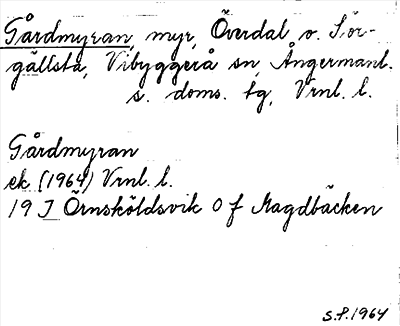 Gårdmyran, myr, Överdal o. Sör-
gällsta, Vibyggerå sn, Ångermanl.
s. doms. tg, Vrnl. l.
Gårdmyran
ek (1964) Vrnl. l.
19 J Örnsköldsvik O f Magdbäcken
S.P. 1964